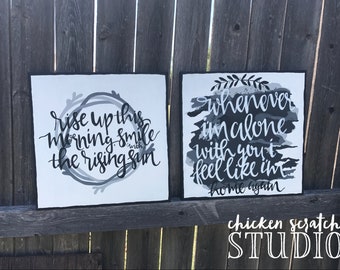 rise up this
morning smile
with
the rising sun
whenever
i'm alone
with you i
feel like i'm
home again
chicken scratch
STUDIO